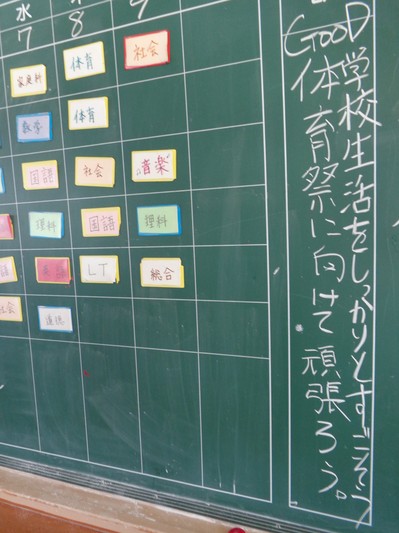 水
7
8
9
家庭科
体育
社会
数学
体育
国語
社会
音楽
理科
国語
理科
英語
LT
総合
社会
道徳
GOOD学校生活をしっかりとすごそう
体育祭に向けて頑張ろう。